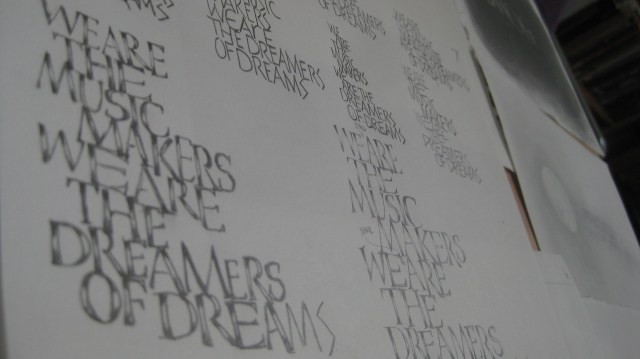 WE ARE
THE
MUSIC
MAKERS
WE ARE
THE
DREAMERS
OF DREAMS
DREAMS
MAKERS
WE ARE
THE DREAMERS
OF DREAMS
OF DREAMS
WE
ARE
THE
MUSIC
MAKERS
WE
ARE THE
DREAMERS
OF DREAMS
WE ARE
THE
MUSIC
MAKERS
WE ARE
THE
DREAMERS